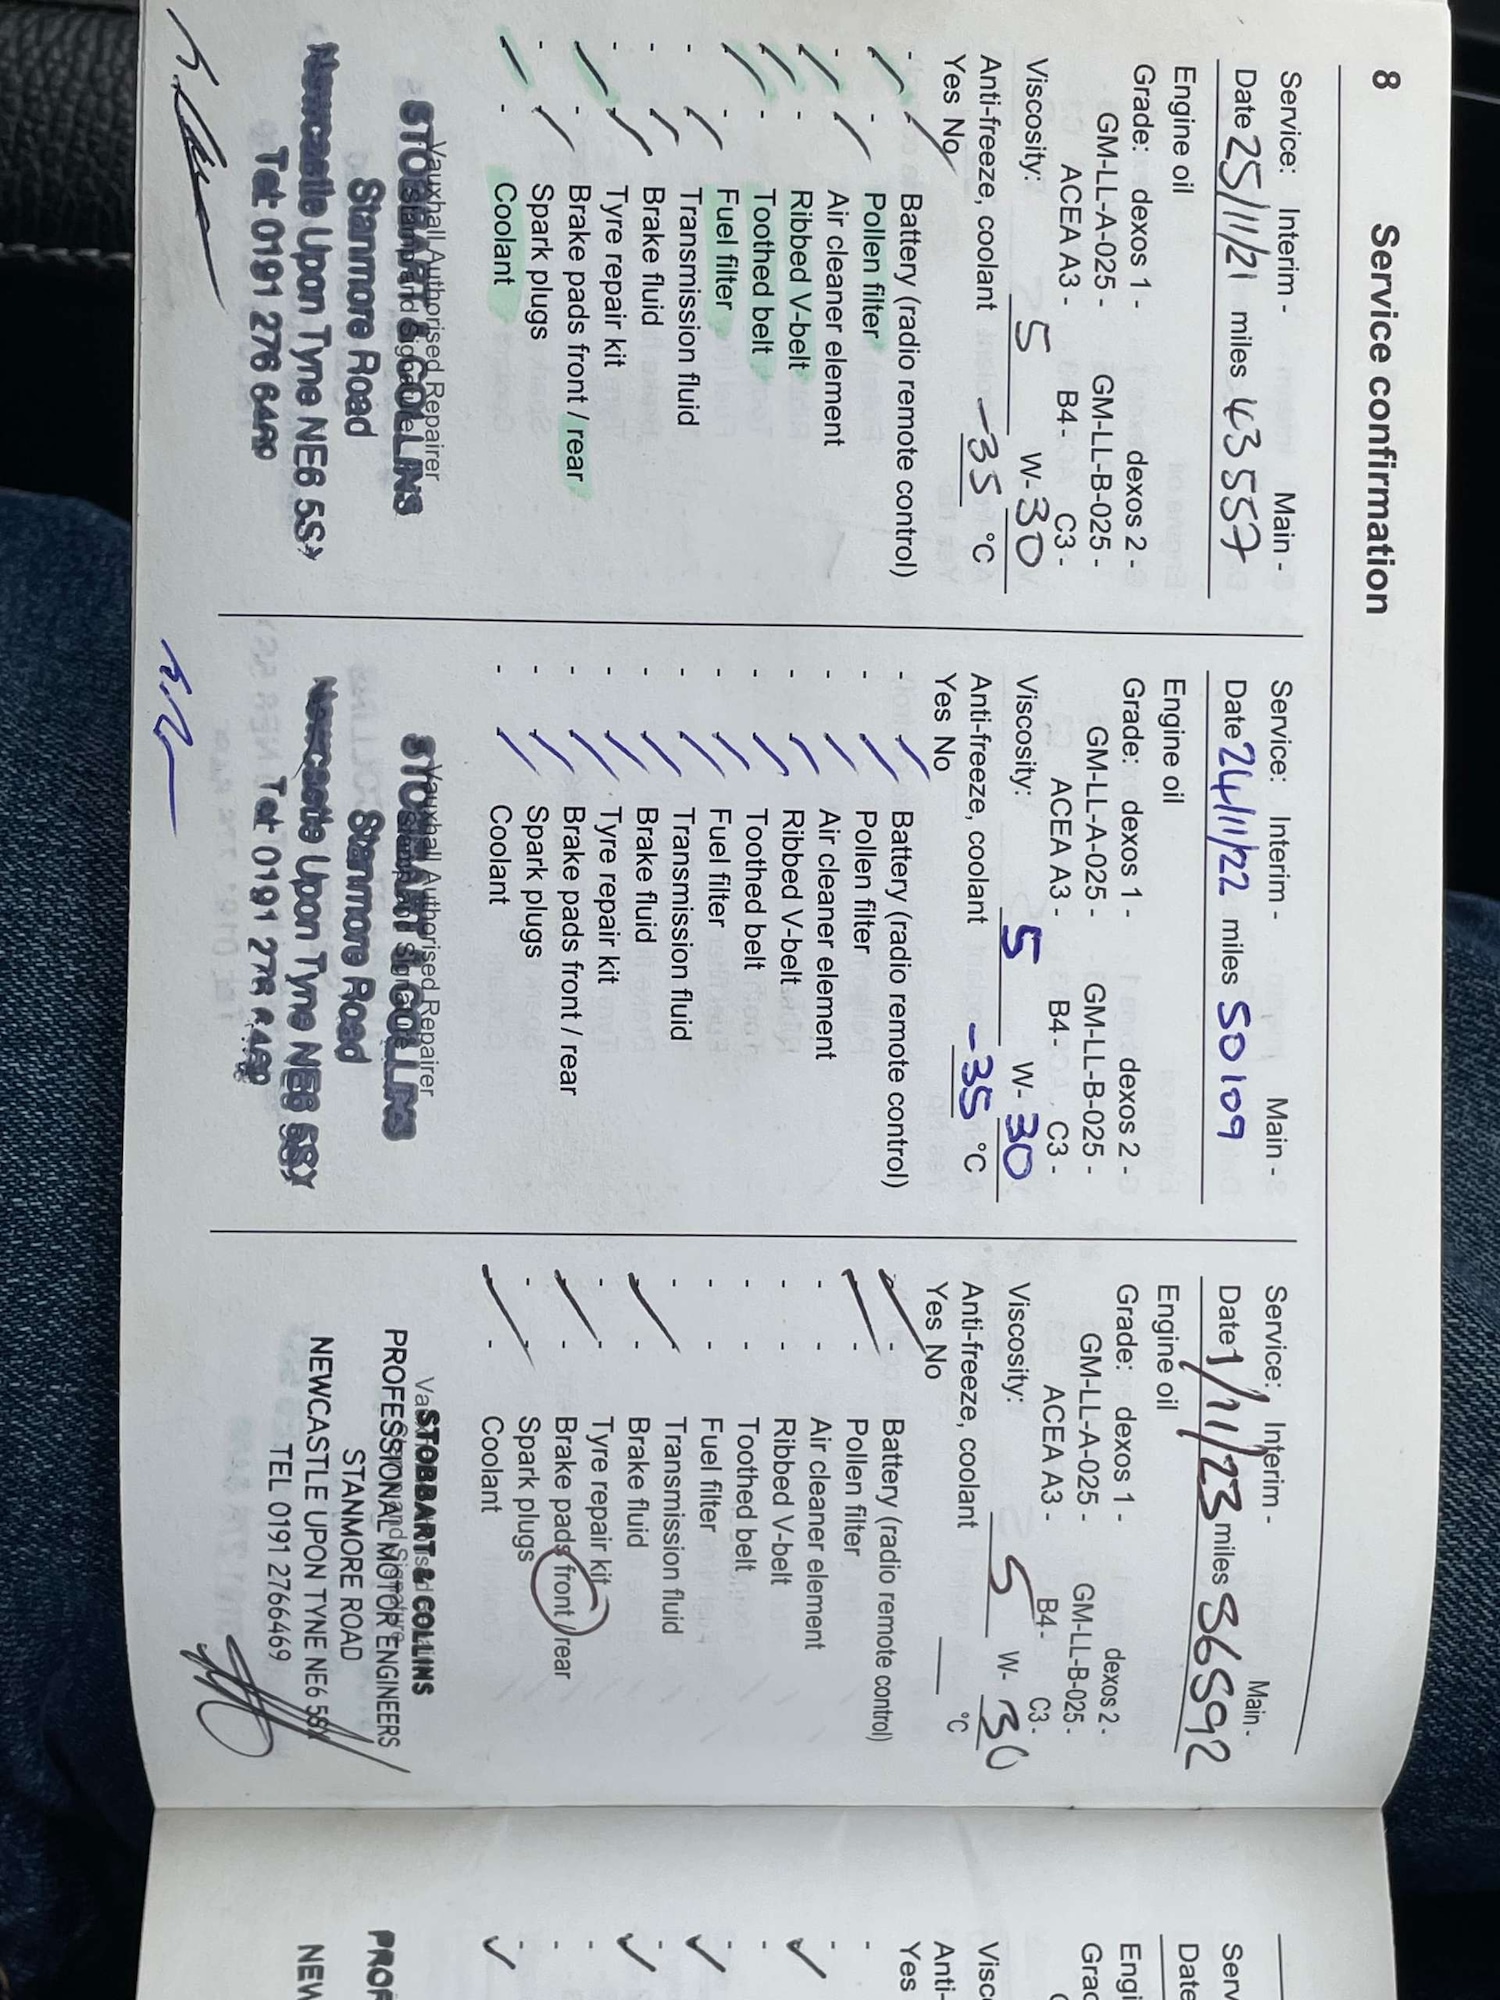 8 Service confirmation
Service: Interim - Main -
Date 25/11/21 miles 43557
Engine oil
Grade: dexos 1 - dexos 2 -
GM-LL-A-025 - GM-LL-B-025 -
ACEA A3 - B4 - C3 -
Viscosity: 5 W- 30
Anti-freeze, coolant -35 °C
Yes No
- Battery (radio remote control)
- Pollen filter
- Air cleaner element
- Ribbed V-belt
- Toothed belt
- Fuel filter
- Transmission fluid
- Brake fluid
- Tyre repair kit
- Brake pads front / rear
- Spark plugs
- Coolant
Vauxhall Authorised Repairer
Stamp and Signature
COLLINS
Stanmore Road
Newcastle Upon Tyne NE6 5SX
Tel: 0191 276 6469
Service: Interim - Main -
Date 24/11/22 miles 50109
Engine oil
Grade: dexos 1 - dexos 2 -
GM-LL-A-025 - GM-LL-B-025 -
ACEA A3 - B4 - C3 -
Viscosity: 5 W- 30
Anti-freeze, coolant -35 °C
Yes No
- Battery (radio remote control)
- Pollen filter
- Air cleaner element
- Ribbed V-belt
- Toothed belt
- Fuel filter
- Transmission fluid
- Brake fluid
- Tyre repair kit
- Brake pads front / rear
- Spark plugs
- Coolant
Vauxhall Authorised Repairer
STOBBART & COLLINS
Stanmore Road
Newcastle Upon Tyne NE6 5SX
Tel: 0191 276 6469
Service: Interim - Main -
Date 1/11/23 miles 56592
Engine oil
Grade: dexos 1 - dexos 2 -
GM-LL-A-025 - GM-LL-B-025 -
ACEA A3 - B4 - C3 -
Viscosity: 5 W- 30
Anti-freeze, coolant °C
Yes No
- Battery (radio remote control)
- Pollen filter
- - Air cleaner element
- - Ribbed V-belt
- - Toothed belt
- - Fuel filter
- - Transmission fluid
- Brake fluid
- - Tyre repair kit
- Brake pads front / rear
- - Spark plugs
- Coolant
STOBBART & COLLINS
PROFESSIONAL MOTOR ENGINEERS
STANMORE ROAD
NEWCASTLE UPON TYNE NE6 5SX
TEL 0191 2766469
Serv
Date
Engi
Grad
Visco
Anti-
Yes
PROF
NEW